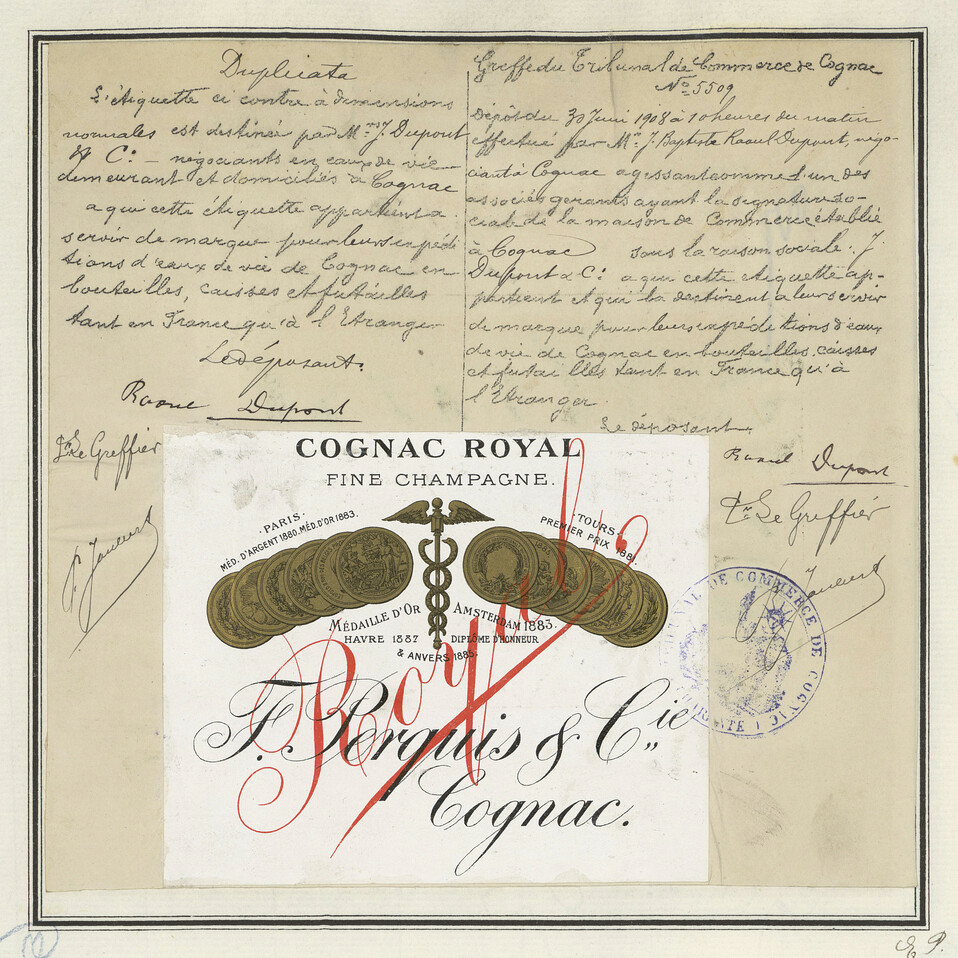 Duplicata
L'étiquette ci contre à dimensions
normales est destinée par Mrs J. Dupont
& Co — négociants en eaux de vie
demeurant et domiciliés à Cognac
a qui cette étiquette appartient a
servir de marque pour leurs expédi
tions d'eaux de vie de Cognac en
bouteilles, caisses et futailles
tant en France qu'à l'Etranger
Le déposant.
Raoul Dupont
Pr Le Greffier
Greffe du Tribunal de Commerce de Cognac
No 5509
Dépôt du 30 Juin 1908 à 10 heures du matin
effectué par Mr J. Baptiste Raoul Dupont, négo-
ciant à Cognac agissant comme l'un des
associés gerants ayant la signature so-
cial de la maison de Commerce établie
à Cognac sous la raison sociale: J.
Dupont & Co a qui cette etiquette ap-
partient et qui la destinent a leur servir
de marque pour leurs expéditions d'eaux
de vie de Cognac en bouteilles, caisses
et futailles tant en France qu'à
l'Etranger.
Le déposant.
Raoul Dupont
Pr Le Greffier
COGNAC ROYAL
FINE CHAMPAGNE.
·PARIS·
MÉD. D'ARGENT 1880. MÉD. D'OR 1883.
·TOURS·
PREMIER PRIX 1881.
MÉDAILLE D'OR AMSTERDAM 1883.
HAVRE 1887 DIPLÔME D'HONNEUR
& ANVERS 1885.
Royal
F. Perquis & Cie
Cognac.
TRIBUNAL DE COMMERCE DE COGNAC
E P.